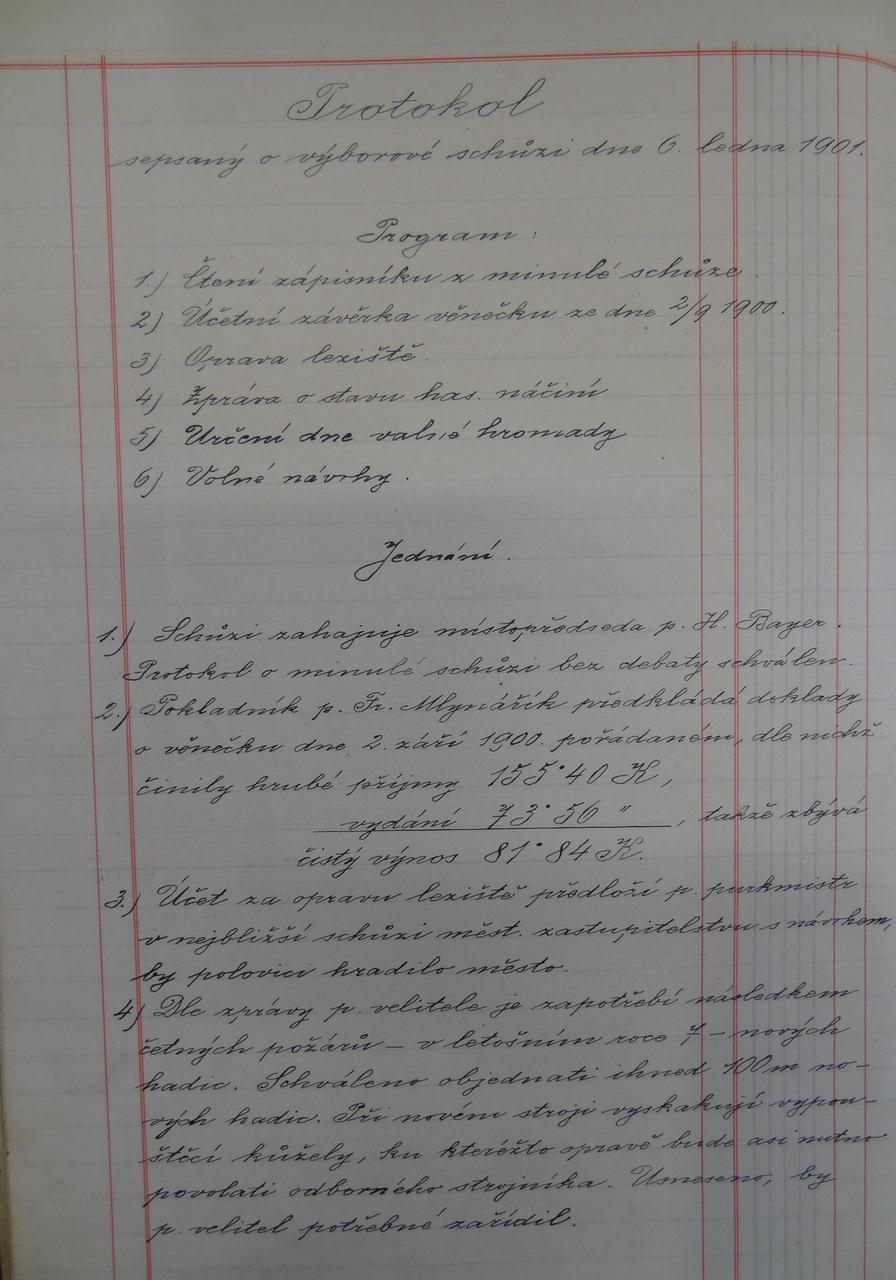 Protokol
sepsaný o výborové schůzi dne 6. ledna 1901.
Program :
1.) Čtení zápisníku z minulé schůze.
2) Účetní závěrka věnečku ze dne 2/9 1900.
3) Oprava leziště.
4) Zpráva o stavu has. náčiní
5) Určení dne valné hromady
6) Volné návrhy.
Jednání.
1.) Schůzi zahajuje místopředseda p. H. Bayer.
Protokol o minulé schůzi bez debaty schválen.
2.) Pokladník p. Fr. Mlynářík předkládá doklady
o věnečku dne 2. září 1900. pořádaném, dle nichž
činily hrubé příjmy 155·40 K,
vydání 73·56 ", takže zbývá
čistý výnos 81·84 K.
3.) Účet za opravu leziště předloží p. purkmistr
v nejbližší schůzi měst. zastupitelstvu s návrhem,
by polovici hradilo město.
4) Dle zprávy p. velitele je zapotřebí následkem
četných požárů – v letošním roce 7 – nových
hadic. Schváleno objednati ihned 100 m no-
vých hadic. Při novém stroji vyskakují vypou-
štěcí kůžely, ku kteréžto opravě bude asi nutno
povolati odborného strojníka. Usneseno, by
p. velitel potřebné zařídil.